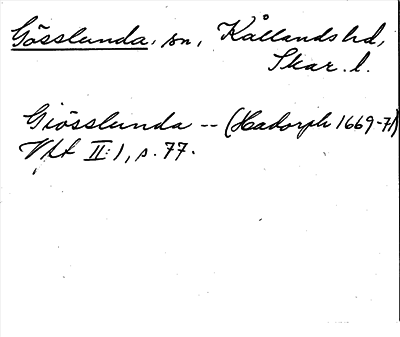 Gösslunda, sn, Kållands hd,
Skar. l.
Giösslunda -- (Hadorph 1669-71)
Vht II:1, s. 77.